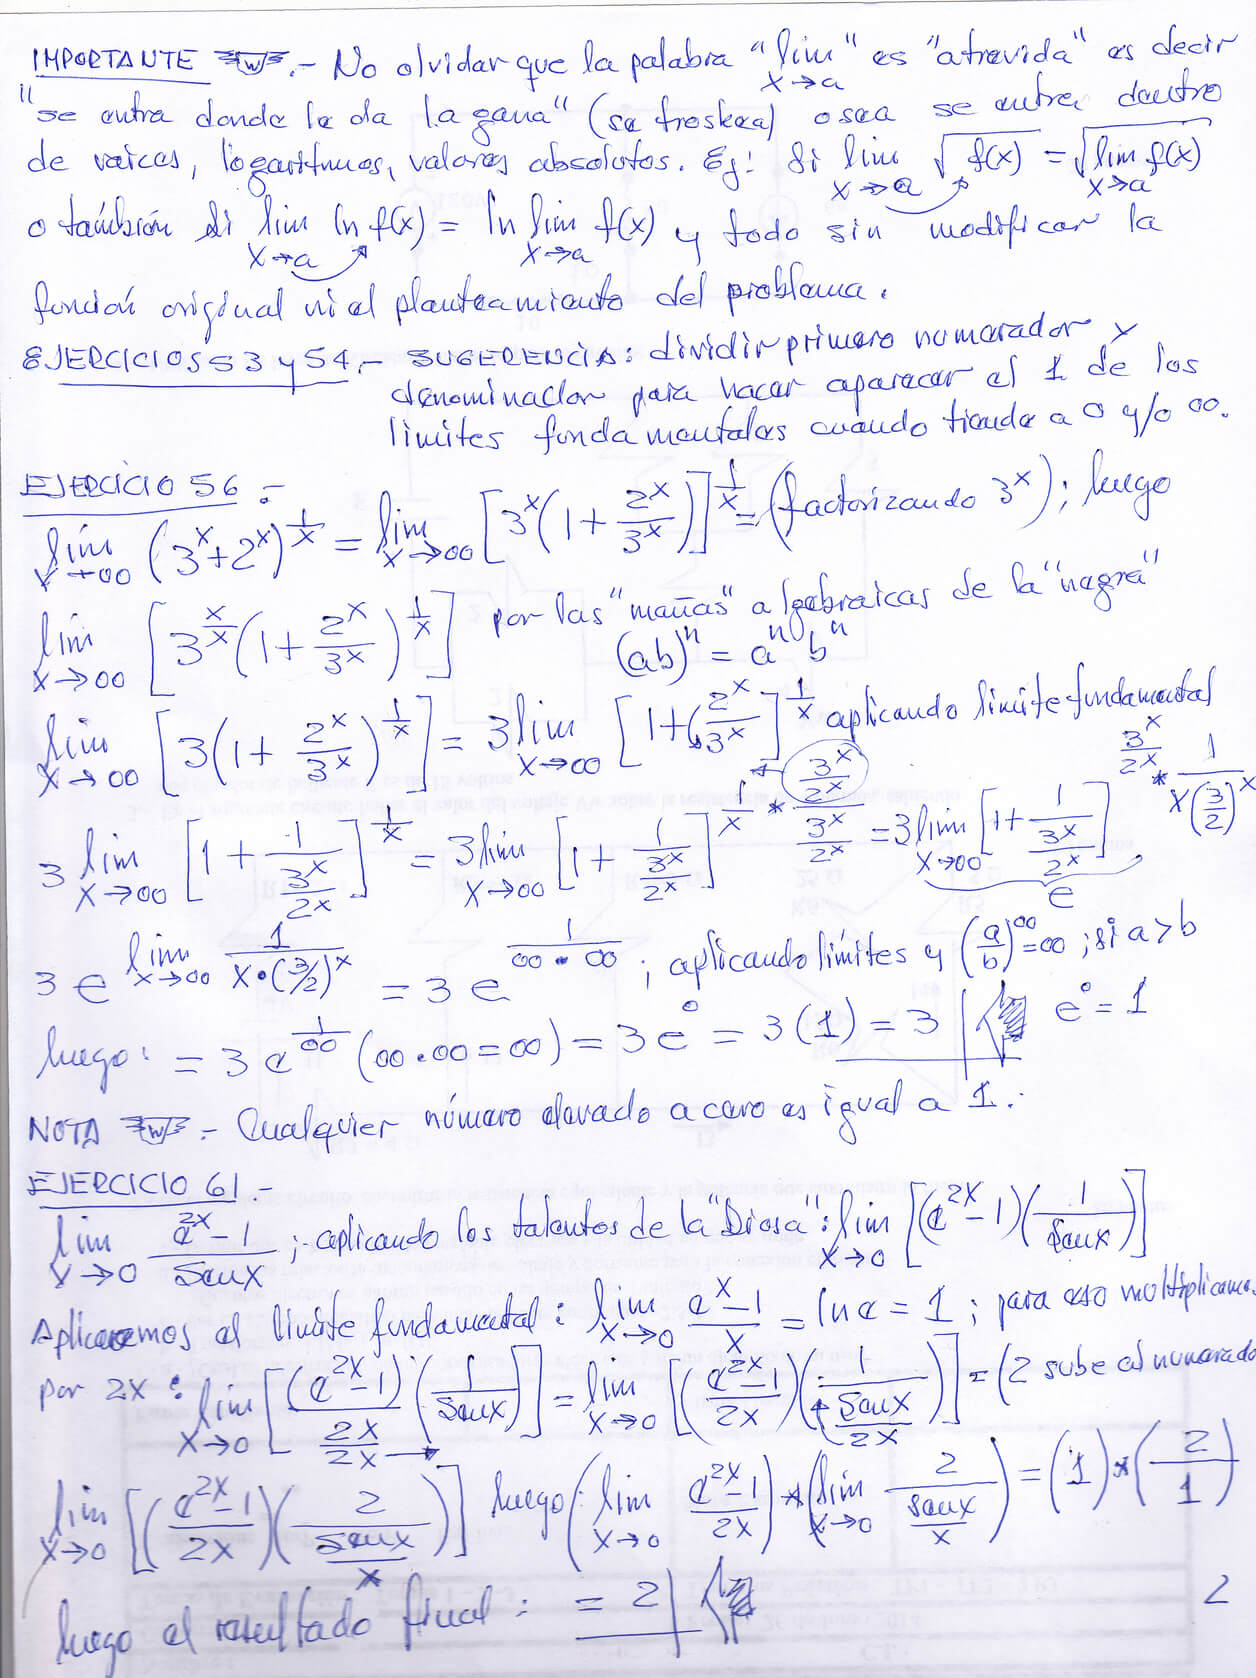 IMPORTANTE W .- No olvidar que la palabra "lim x→a" es "atrevida" es decir
"se entra donde le da la gana" (se froskea) osea se entra dentro
de raices, logaritmos, valores absolutos. Ej: Si lim x→a √f(x) = √lim x→a f(x)
o también si lim x→a ln f(x) = ln lim x→a f(x) y todo sin modificar la
función original ni el planteamiento del problema.
EJERCICIOS 53 y 54.- SUGERENCIA: dividir primero numerador y
denominador para hacer aparecer el 1 de los
limites fundamentales cuando tiende a 0 y/o ∞.
EJERCICIO 56.-
lím x→∞ (3^x+2^x)^(1/x) = lim x→∞ [3^x(1+2^x/3^x)]^(1/x) = (factorizando 3^x); luego
lím x→∞ [3^(x/x)(1+2^x/3^x)^(1/x)] por las "mañas" algebraicas de la "negra"
(ab)^n = a^n b^n
lim x→∞ [3(1+2^x/3^x)^(1/x)] = 3 lim x→∞ [1+(2^x/3^x]^(1/x) aplicando limite fundamental
3 lim x→∞ [1+1/(3^x/2^x)]^(1/x) = 3 lim x→∞ [1+1/(3^x/2^x)]^(1/x * (3^x/2^x)/(3^x/2^x)) = 3 lim x→∞ [1+1/(3^x/2^x)]^(3^x/2^x * 1/(x(3/2)^x))
e
3 e^(lim x→∞ 1/(x·(3/2)^x)) = 3 e^(1/(∞·∞)) ; aplicando límites y (a/b)^∞=∞ ; si a>b
luego: = 3 e^(1/∞) (∞·∞=∞) = 3e^0 = 3(1) = 3 e^0 = 1
NOTA W .- Cualquier número elevado a cero es igual a 1.
EJERCICIO 61.-
lim x→0 (e^(2x)-1)/Senx ; aplicando los talentos de la "Diosa": lim x→0 [(e^(2x)-1)(1/Senx)]
Aplicaremos el limite fundamental: lim x→0 (e^x-1)/x = ln e = 1 ; para eso multiplicamos
por 2x: lim x→0 [(e^(2x)-1)/(2x/2x) (1/Senx)] = lim x→0 [((e^(2x)-1)/2x)(1/(Senx/2x))] = (2 sube al numerado
lim x→0 [((e^(2x)-1)/2x)(2/(senx/x))] luego: (lim x→0 (e^(2x)-1)/2x) * (lim x→0 2/(senx/x)) = (1)*(2/1)
luego el resultado final: = 2
2